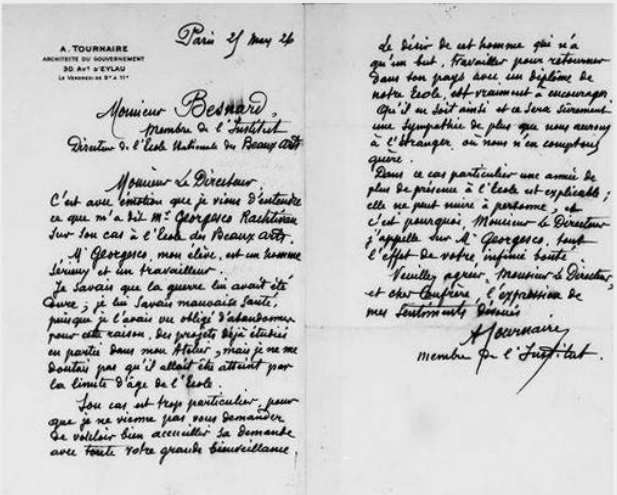 A. TOURNAIRE
ARCHITECTE DU GOUVERNEMENT
30 AVE D'EYLAU
LE VENDREDI DE 9H A 11H
Paris 25 may 26
Monsieur Besnard,
membre de l'Institut
Directeur de l'Ecole Nationale des Beaux Arts
Monsieur Le Directeur
C'est avec émotion que je viens d'entendre
ce que m'a dit Mr Georgesco
sur son cas à l'Ecole des Beaux Arts.
Mr Georgesco, mon élève, est un homme
sérieux et un travailleur.
Je savais que la guerre lui avait été
dure; je lui savais mauvaise santé,
puisque je l'avais vu obligé d'abandonner
pour cette raison, des projets déjà étudiés
en partie dans mon Atelier, mais je ne me
doutais pas qu'il allait être atteint par
la limite d'âge de l'Ecole.
Son cas est trop particulier, pour
que je ne vienne pas vous demander
de vouloir bien accueillir sa demande
avec toute votre grande bienveillance.
Le désir de cet homme qui n'a
qu'un but, travailler pour retourner
dans son pays avec un diplôme de
notre Ecole, est vraiment à encourager
Qu'il en soit ainsi et ce sera sûrement
une sympathie de plus que nous aurons
à l'étranger où nous n'en comptons
guère.
Dans ce cas particulier une année de
plus de présence à l'Ecole est explicable;
elle ne peut nuire à personne, et
c'est pourquoi, Monsieur Le Directeur
j'appelle sur Mr Georgesco, tout
l'effet de votre infinie bonté.
Veuillez agréer, Monsieur Le Directeur,
et cher Confrère, l'expression de
mes sentiments dévoués
A Tournaire
membre de l'Institut.